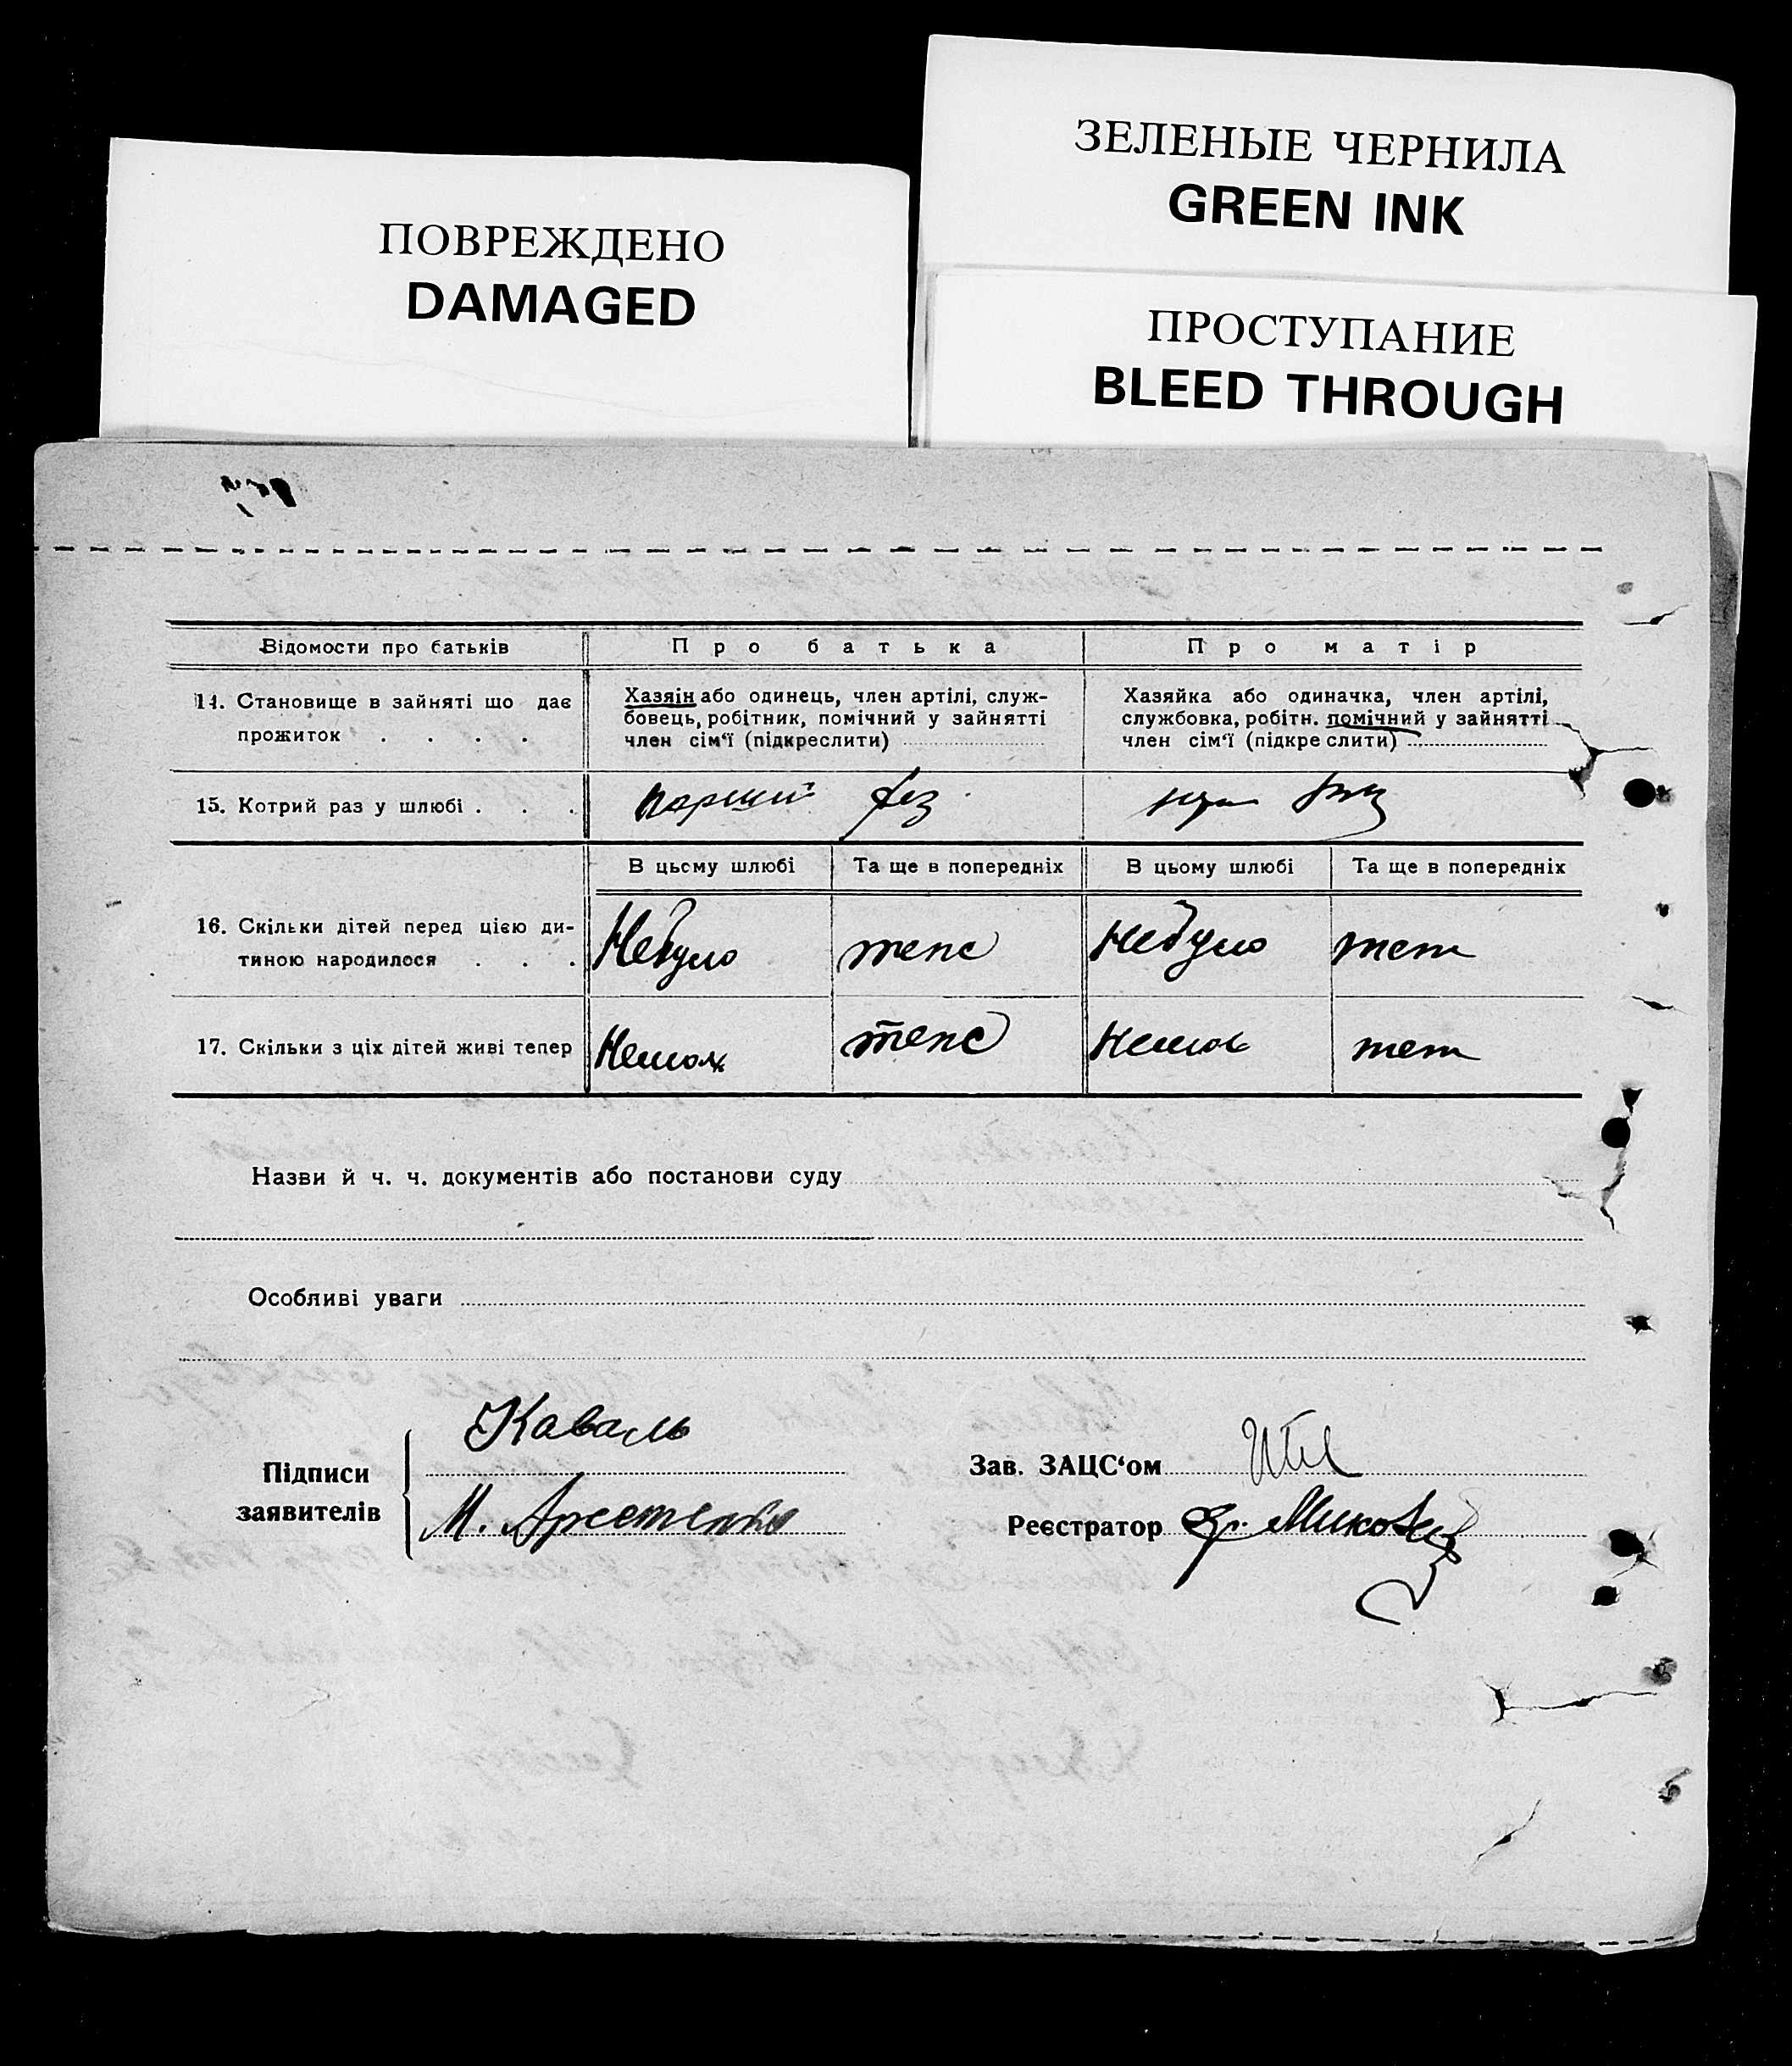 ЗЕЛЕНЫЕ ЧЕРНИЛА
GREEN INK
ПОВРЕЖДЕНО
DAMAGED
ПРОСТУПАНИЕ
BLEED THROUGH
Відомости про батьків
Про батька
Про матір
14. Становище в зайняті що дає
прожиток . . . .
Хазяін або одинець, член артілі, служ-
бовець, робітник, помічний у зайнятті
член сім‘ї (підкреслити)
Хазяйка або одиначка, член артілі,
службовка, робітн. помічний у зайнятті
член сім‘ї (підкреслити)
15. Котрий раз у шлюбі . . .
В цьому шлюбі
Та ще в попередніх
В цьому шлюбі
Та ще в попередніх
16. Скільки дітей перед цією ди-
тиною народилося . . .
Небуло
Небуло
17. Скільки з ціх дітей живі тепер
Назви й ч. ч. документів або постанови суду
Особливі уваги
Підписи
заявителів
Каваль
М.
Зав. ЗАЦС‘ом
Реєстратор